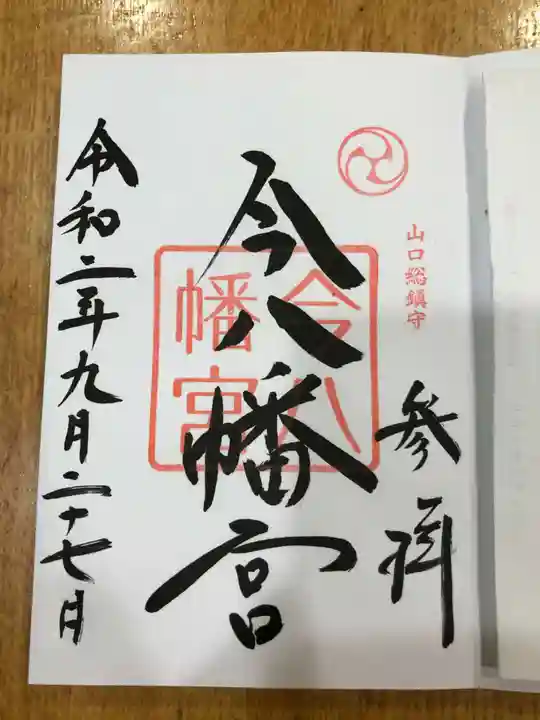 山口総鎮守
参拝
今八幡宮
今八
幡宮
令和二年九月二十七日